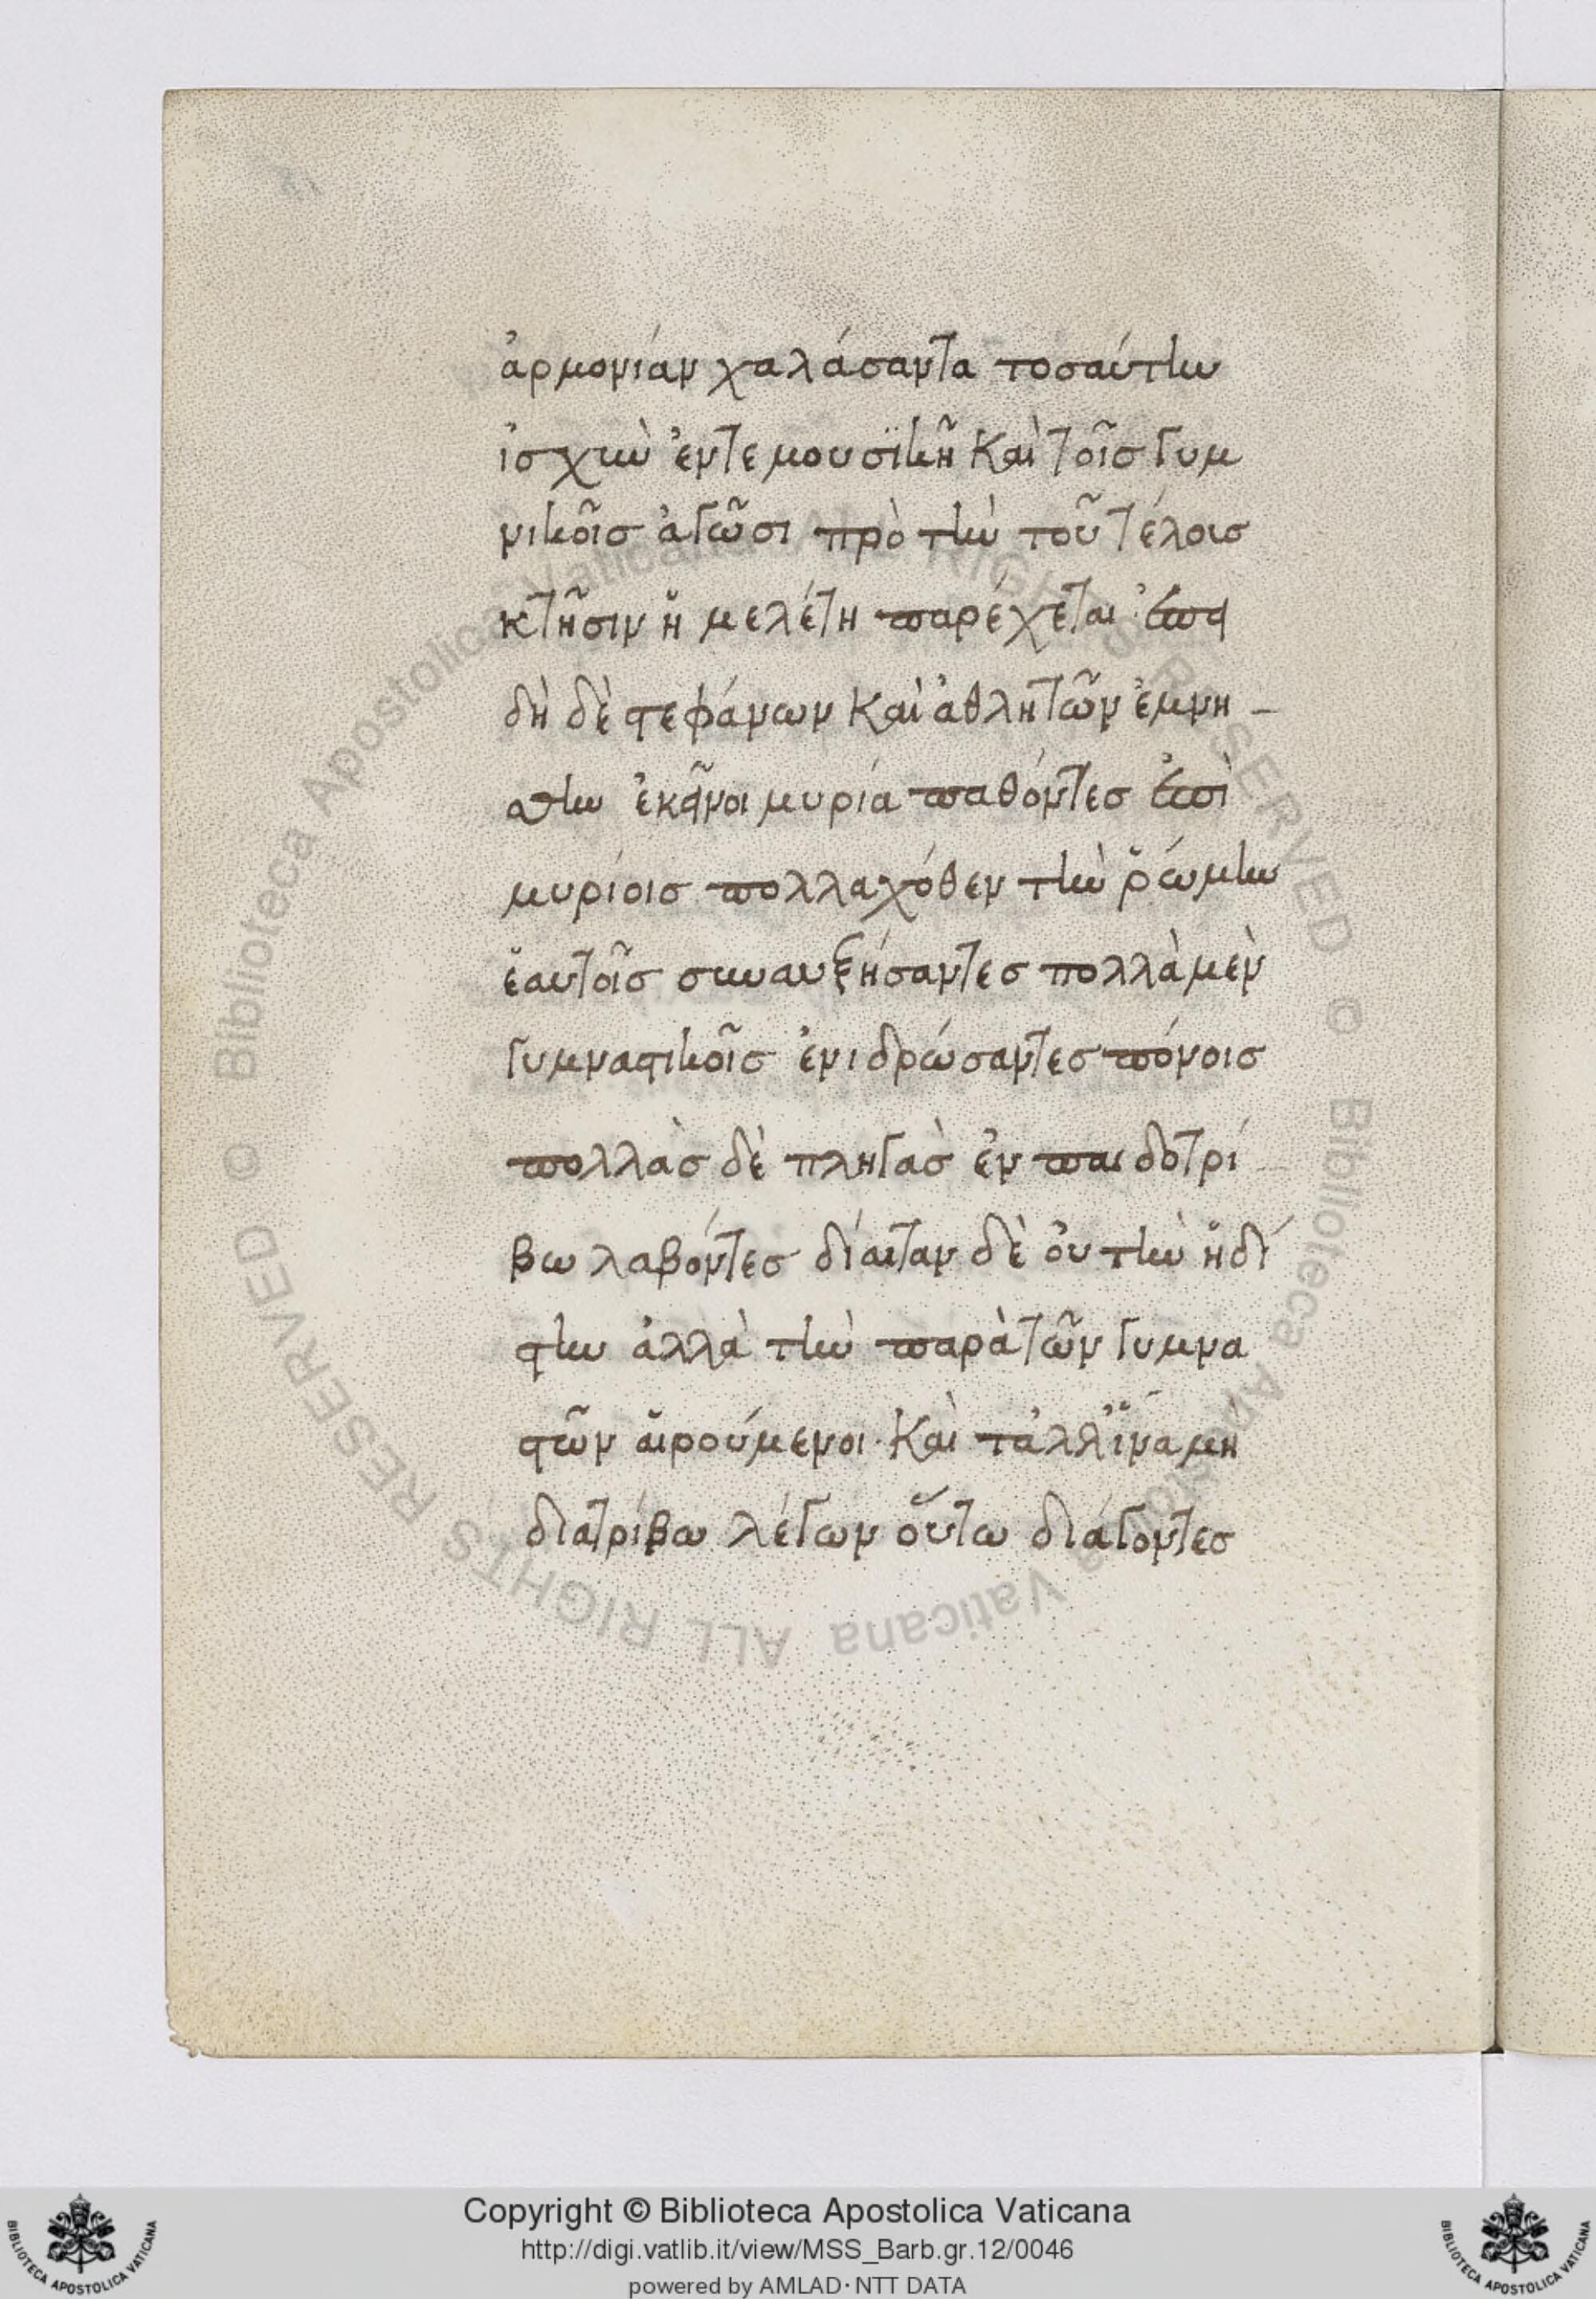 ἁρμονίαν χαλάσαντα τοσαύτην
ἰσχὺν ἔν τε μουσϊκῆ καὶ τοῖς γυμ
νικοῖς ἀγῶσι πρὸ τὴν τοῦ τέλους
κτῆσιν ἡ μελέτη παρέχεται ἐπει
δὴ δὲ στεφάνων καὶ ἀθλητῶν ἐμνή
σθην ἐκεῖνοι μυρία παθόντες ἐπὶ
μυρίοις πολλαχόθεν τὴν ῥώμην
ἑαυτοῖς συναυξήσαντες πολλὰ μὲν
γυμναστικοῖς ἐνιδρώσαντες πόνοις
πολλὰς δὲ πληγὰς ἐν παιδοτρί
βω λαβόντες δίαιταν δὲ οὐ τὴν ἡδί
στην ἀλλὰ τὴν παρὰ τῶν γυμνα
στῶν αἱρούμενοι· καὶ τἀλλ' ἵνα μὴ
διατρίβω λέγων οὕτω διάγοντες
Copyright © Biblioteca Apostolica Vaticana
http://digi.vatlib.it/view/MSS_Barb.gr.12/0046
powered by AMLAD·NTT DATA
BIBLIOTECA APOSTOLICA VATICANA
BIBLIOTECA APOSTOLICA VATICANA
© Biblioteca Apostolica Vaticana ALL RIGHTS RESERVED © Biblioteca Apostolica Vaticana ALL RIGHTS RESERVED